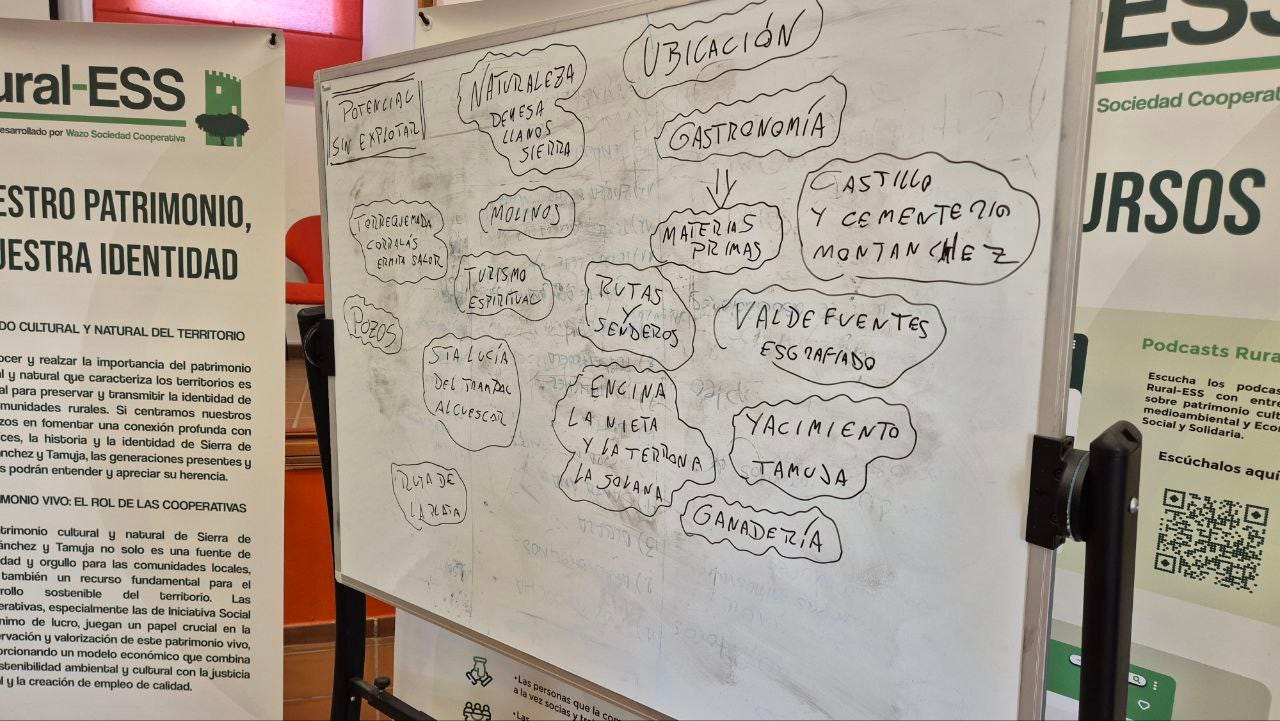 ural-ESS
esarrollado por Wazo Sociedad Cooperativa
ESTRO PATRIMONIO,
UESTRA IDENTIDAD
DO CULTURAL Y NATURAL DEL TERRITORIO
ocer y realzar la importancia del patrimonio
al y natural que caracteriza los territorios es
al para preservar y transmitir la identidad de
munidades rurales. Si centramos nuestros
zos en fomentar una conexión profunda con
ces, la historia y la identidad de Sierra de
nchez y Tamuja, las generaciones presentes y
s podrán entender y apreciar su herencia.
MONIO VIVO: EL ROL DE LAS COOPERATIVAS
trimonio cultural y natural de Sierra de
ánchez y Tamuja no solo es una fuente de
dad y orgullo para las comunidades locales,
también un recurso fundamental para el
rrollo sostenible del territorio. Las
erativas, especialmente las de Iniciativa Social
nimo de lucro, juegan un papel crucial en la
ervación y valorización de este patrimonio vivo,
orcionando un modelo económico que combina
stenibilidad ambiental y cultural con la justicia
l y la creación de empleo de calidad.
POTENCIAL
SIN EXPLOTAR
NATURALEZA
DEHESA
LLANOS
SIERRA
UBICACIÓN
GASTRONOMÍA
MATERIAS
PRIMAS
CASTILLO
Y CEMENTERIO
MONTANCHEZ
TORREQUEMADA
CORRALÁS
ERMITA SALOR
MOLINOS
TURISMO
ESPIRITUAL
RUTAS
Y
SENDEROS
VALDEFUENTES
ESGRAFIADO
POZOS
STA LUCÍA
DEL TRAMPAL
ALCUESCAR
ENCINA
LA NIETA
Y LA TERRONA
LA SOLANA
YACIMIENTO
TAMUJA
RUTA DE
LA PLATA
GANADERÍA
•Las personas que la com
a la vez socias y tra
•Las
ESS
Sociedad Coopera
URSOS
Podcasts Rura
Escucha los podcas
Rural-ESS con entre
sobre patrimonio cultu
medioambiental y Econ
Social y Solidaria.
Escúchalos aquí